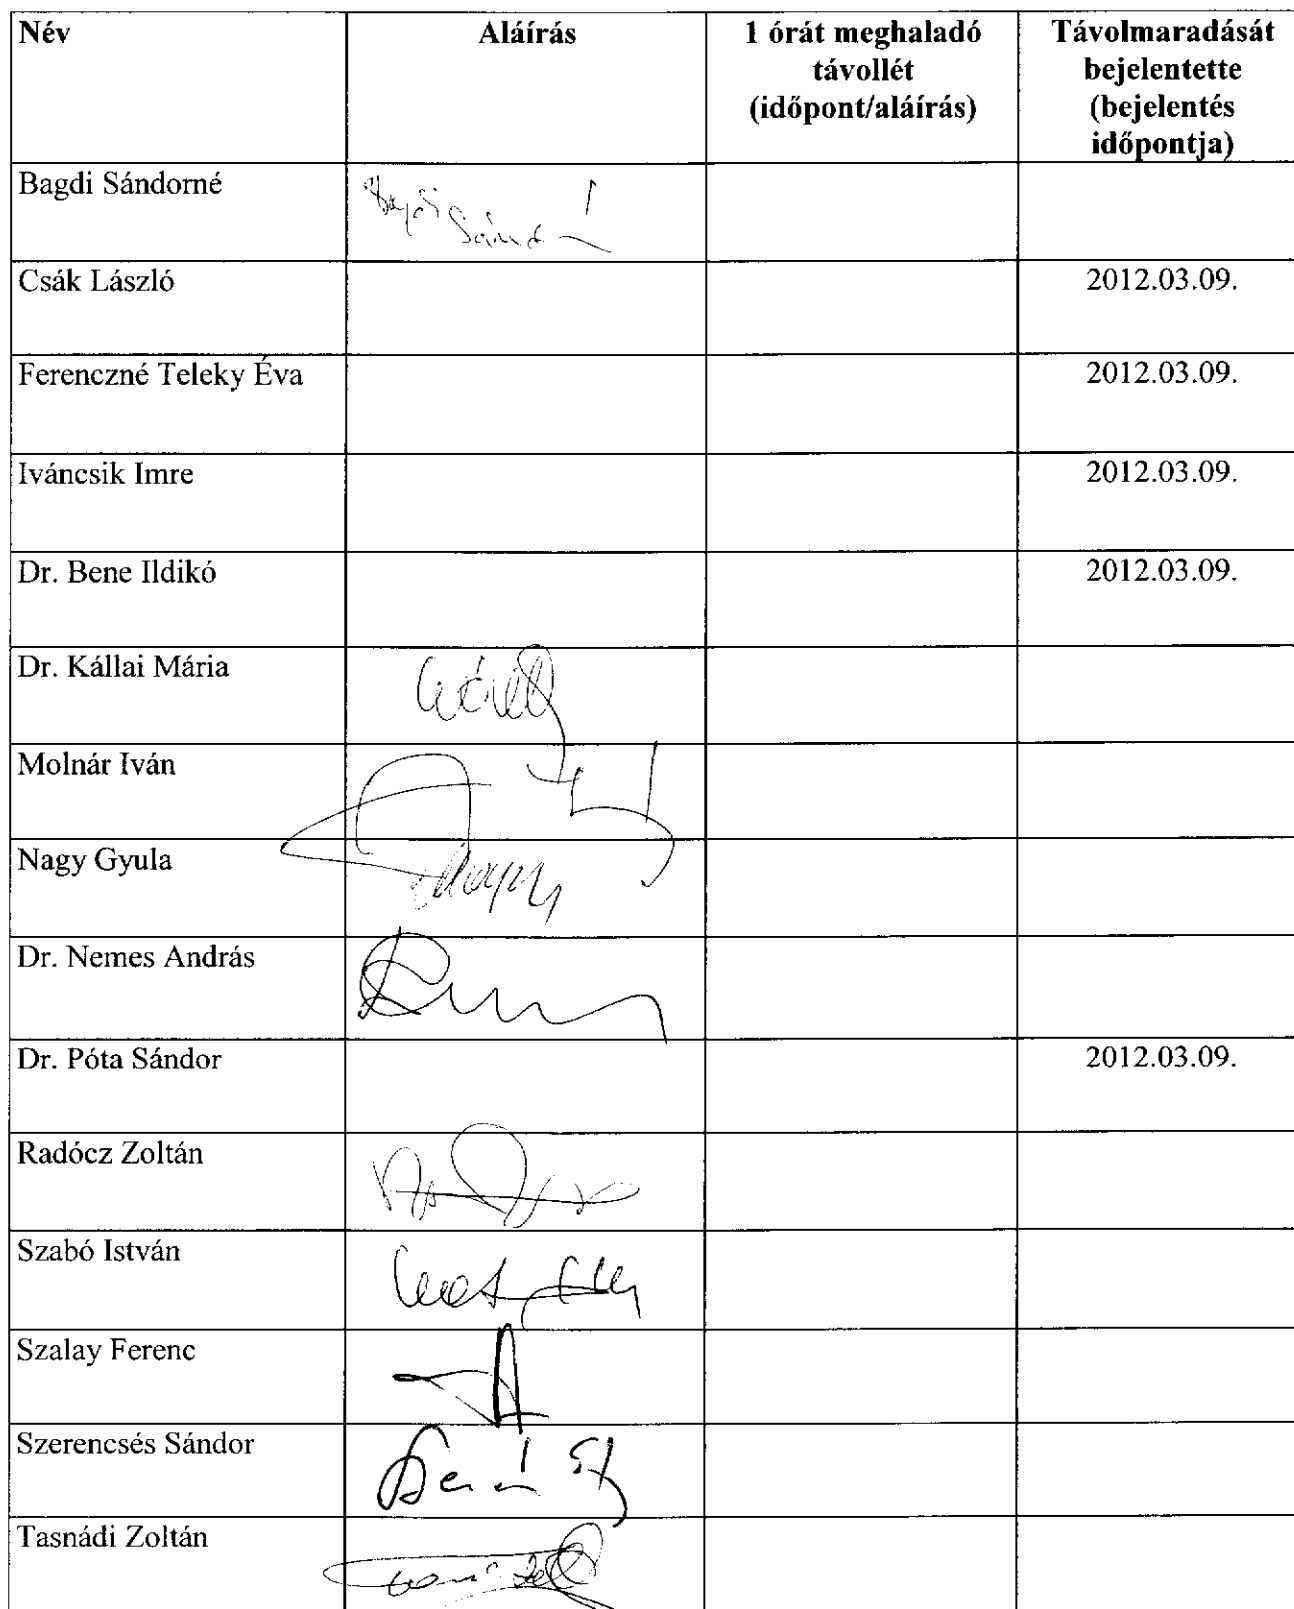 Név Aláírás 1 órát meghaladó Távolmaradását
távollét bejelentette
(időpont/aláírás) (bejelentés
időpontja)
Bagdi Sándorné
Csák László 2012.03.09.
Ferenczné Teleky Éva 2012.03.09.
Iváncsik Imre 2012.03.09.
Dr. Bene Ildikó 2012.03.09.
Dr. Kállai Mária
Molnár Iván
Nagy Gyula
Dr. Nemes András
Dr. Póta Sándor 2012.03.09.
Radócz Zoltán
Szabó István
Szalay Ferenc
Szerencsés Sándor
Tasnádi Zoltán